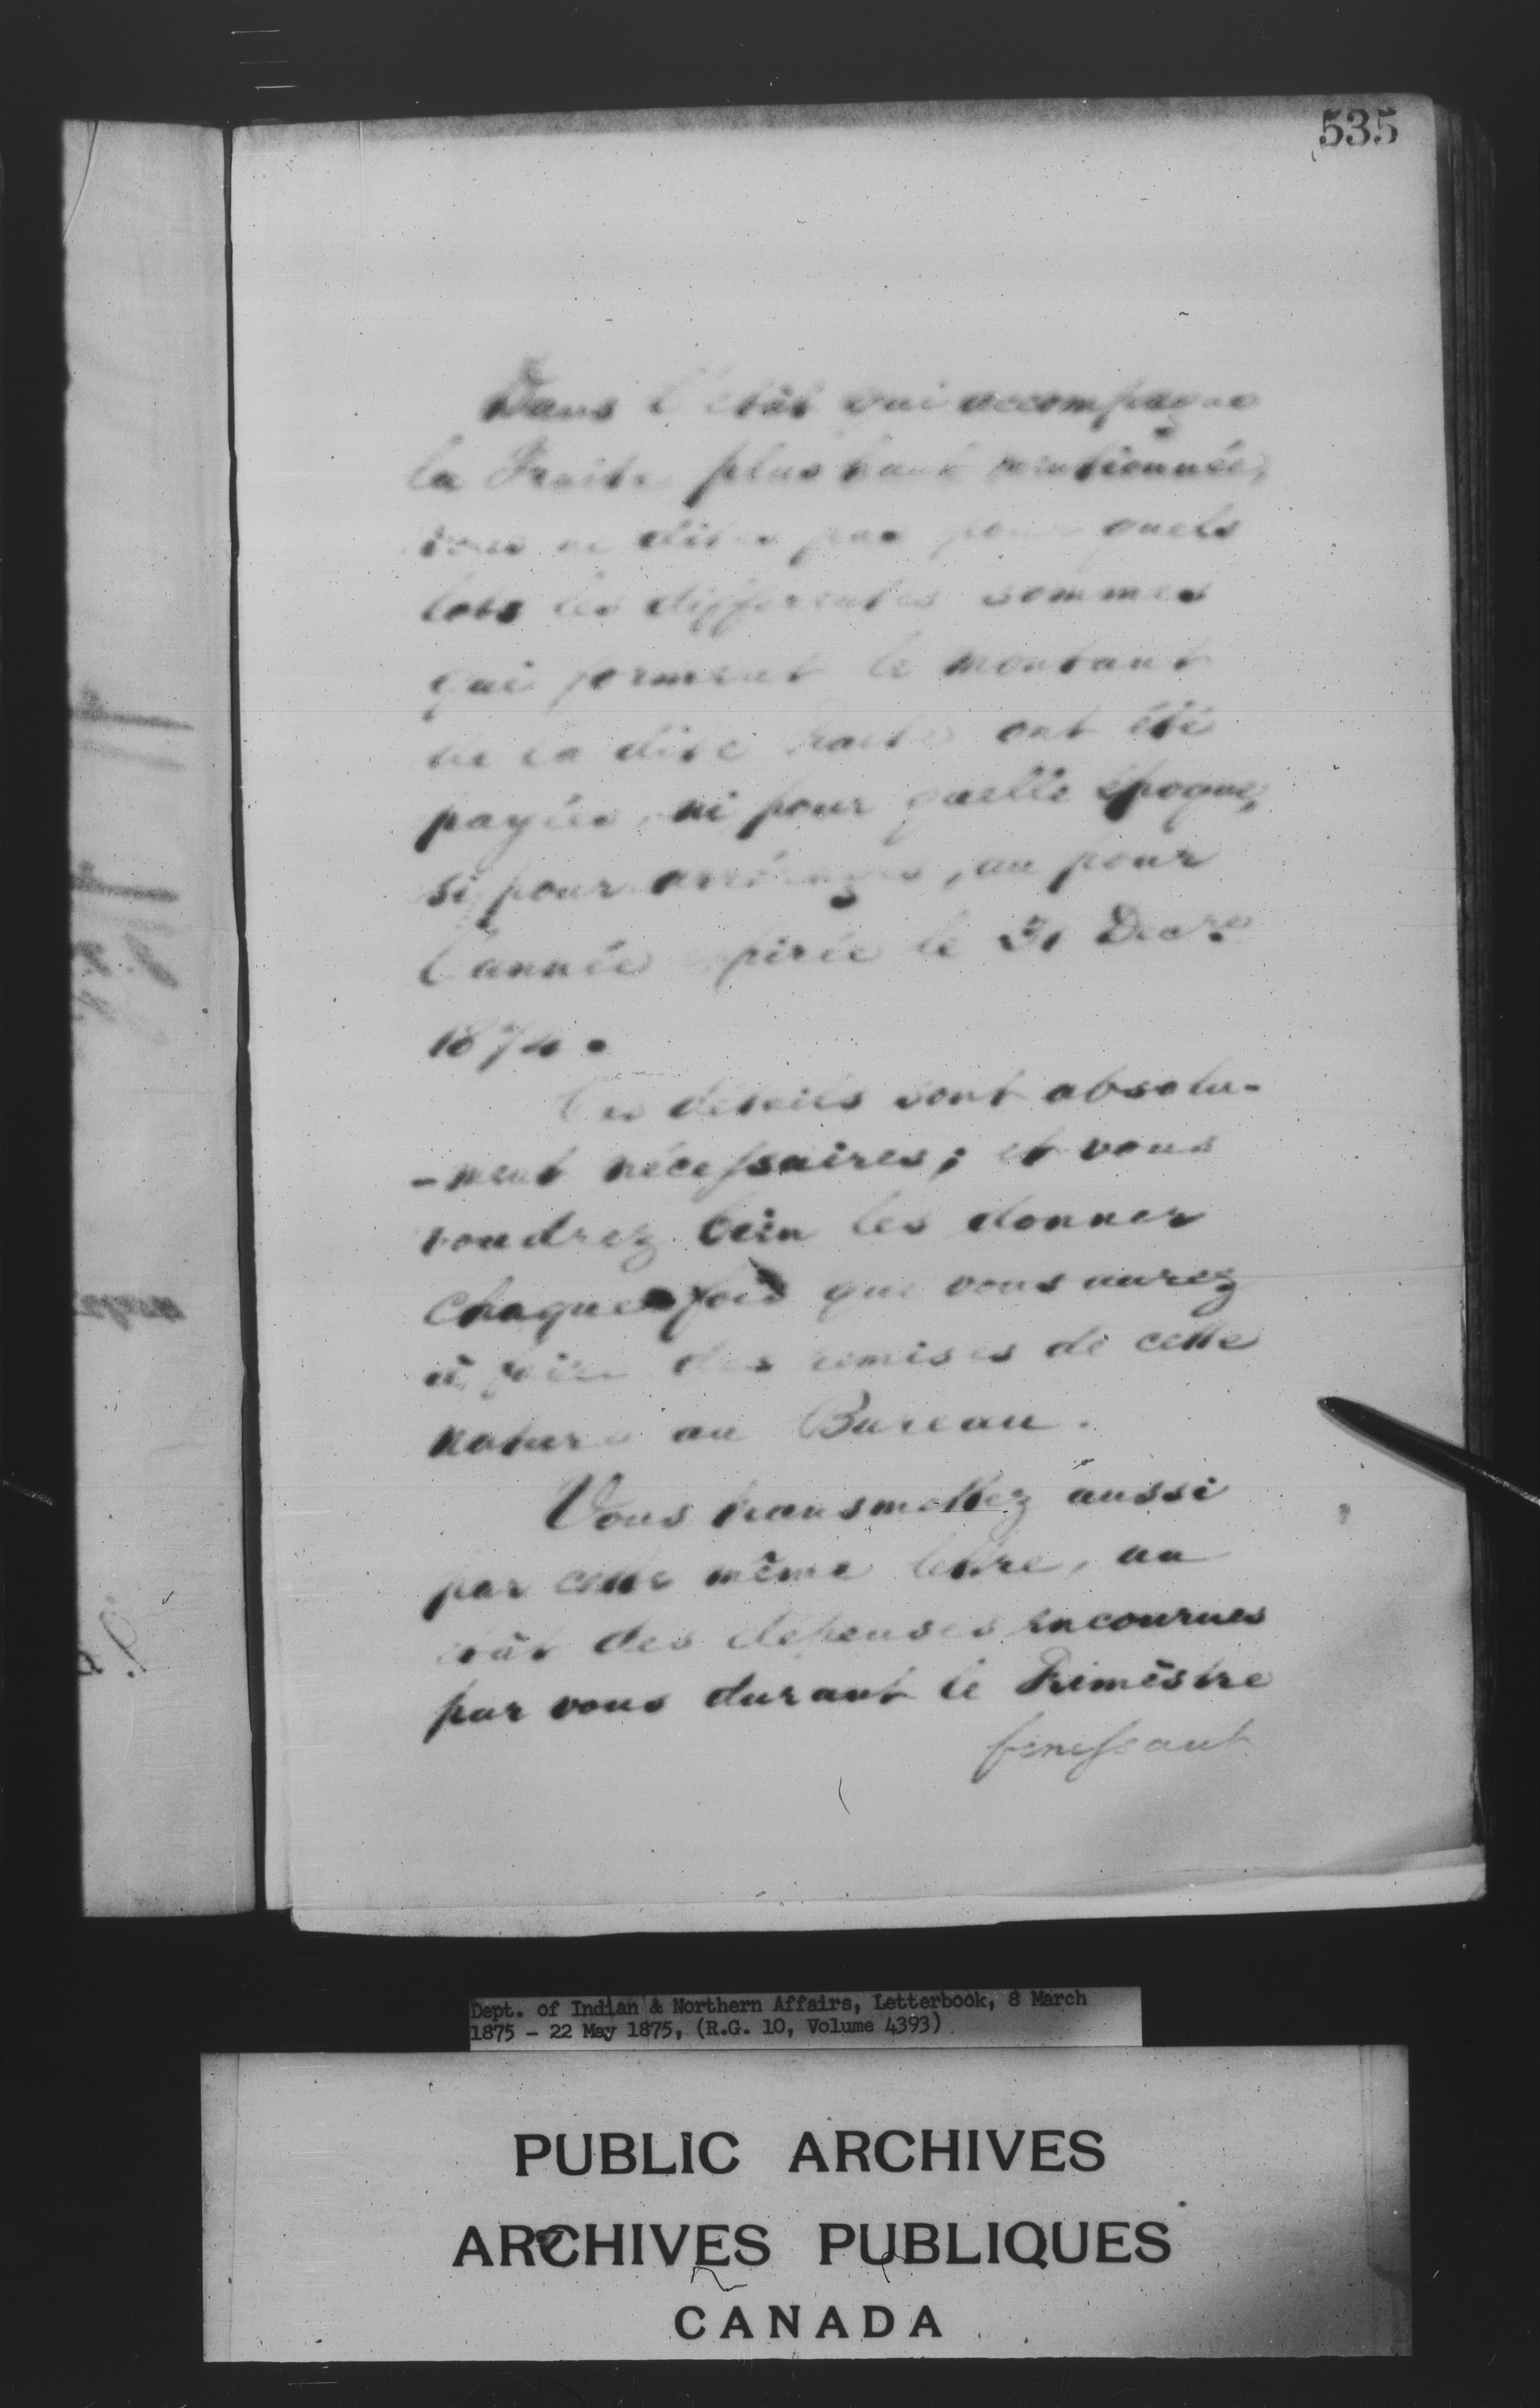 535
Dans l'etât qui accompagne
la Traite plus haut mentionnée,
vous ne dites pas pour quels
lots les differentes sommes
qui forment le montant
de la dite traite ont été
payées, ni pour quelle époque,
si pour arrérages, ou pour
l'année expirée le 31 Decre
1874.
Ces details sont absolu-
-ment nécessaires; et vous
voudrez bein les donner
chaque fois que vous aurez
à faire des remises de cette
nature au Bureau.
Vous transmettez aussi
par cette même lettre, un
etât des depenses encourues
par vous durant le Trimêstre
finissant
Dept. of Indian & Northern Affairs, Letterbook, 8 March
1875 - 22 May 1875, (R.G. 10, Volume 4393)
PUBLIC ARCHIVES
ARCHIVES PUBLIQUES
CANADA